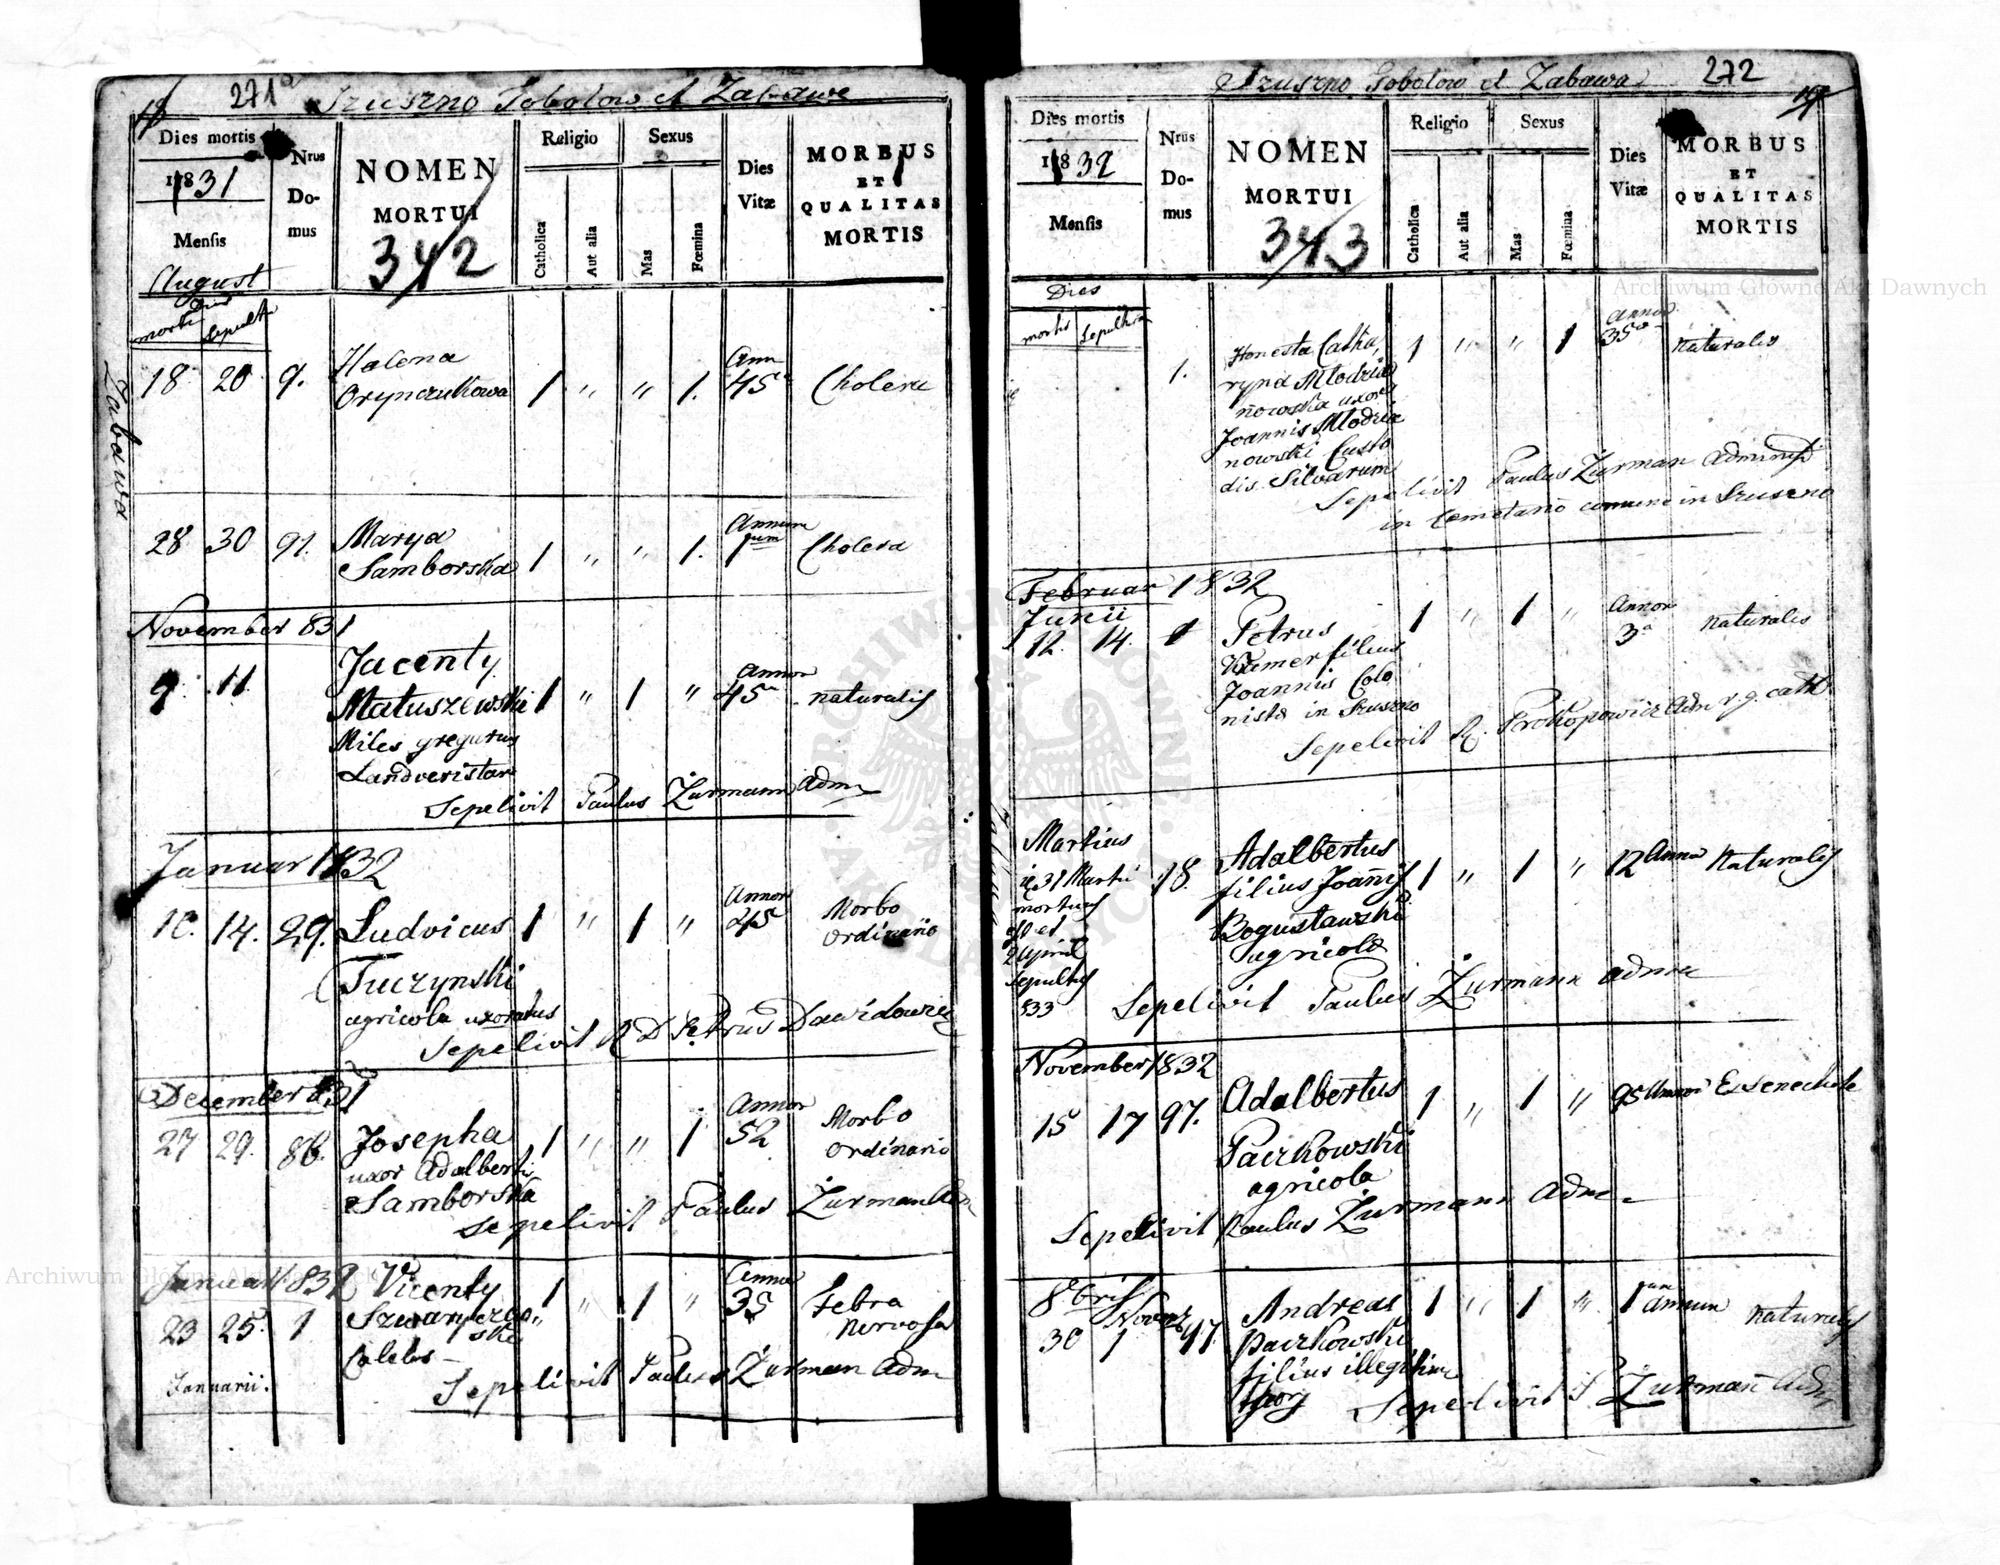 271a
Szuszno Sobotow et Zabawa
Dies mortis
1831
Mensis
August
Dies
mortis sepult
Nrus
Do-
mus
NOMEN
MORTUI
342
Religio
Catholica
Aut alia
Sexus
Mas
Fœmina
Dies
Vitæ
MORBUS
ET
QUALITAS
MORTIS
Zabawa
Halena
Orynczukowa
18 20 9. 1 " " 1. Ann 45 Cholera
Marya
Samborska
28 30 91. 1 " " 1. Annum 1um Cholera
November 831
Jacenty
9 11 Matuszewski 1 " 1 " Annor 45 naturalis
Miles gregarius
Landveristar
Sepelivit Paulus Żurmann Adm
Januar 1832
14. 29. Ludvicus 1 " 1 " Annor 45 Morbo
ordinario
Tuczynski
agricola uxoratus
Sepelivit R D Petrus Dawidowicz
December 831
27 29. 86. Josepha 1 " " 1 Annor 52 Morbo
ordinario
uxor Adalberti
Samborska
Sepelivit Paulus Żurmann
Januar 1832 Vicenty
23 25. 1 1 " 1 " Annor 35 Febra
nervosa
Januarii. Calebs
Sepelivit Paulus Żurman Adm
272
Szuszno Sobotow et Zabawa
Dies mortis
1832
Mensis
Dies
mortis Sepultura
Nrus
Do-
mus
NOMEN
MORTUI
343
Religio
Catholica
Aut alia
Sexus
Mas
Fœmina
Dies
Vitæ
MORBUS
ET
QUALITAS
MORTIS
1. Honesta Catha 1 " " 1 Annor 35 naturalis
ryna Młodzia
nowska uxor
Joannis Młodzia
nowski Custo
dis Silvarum
Sepelivit Paulus Żurman Administ
in Cemetario comune in Szuszno
Februar 1832
Junii
12. 14. Petrus 1 " 1 " Annor 3a naturalis
Kamer filius
Joannis Colo
nista in Szuszno
Sepelivit R. Prokopowicz Adm r. g. cath
Martius
31 Martii 18. Adalbertus 1 " 1 " 12 Anno Naturalis
mortuus filius Joanis
est et Bogusławski
2 April agricola
sepultus
833 Sepelivit Paulus Żurmann adm
November 1832
15 17 97. Adalbertus 1 " 1 " 95 Annor E senectute
Paczkowski
agricola
Sepelivit Paulus Żurmann Adm
8bris
Novemb
30 1 Andreas 1 " 1 " 1um annum naturalis
Paczkowski
filius illegitim
thorj
Sepelivit P Żurman Adm
Archiwum Główne Akt Dawnych
Archiwum Główne Akt Dawnych
ARCHIWUM GŁÓWNE AKT DAWNYCH